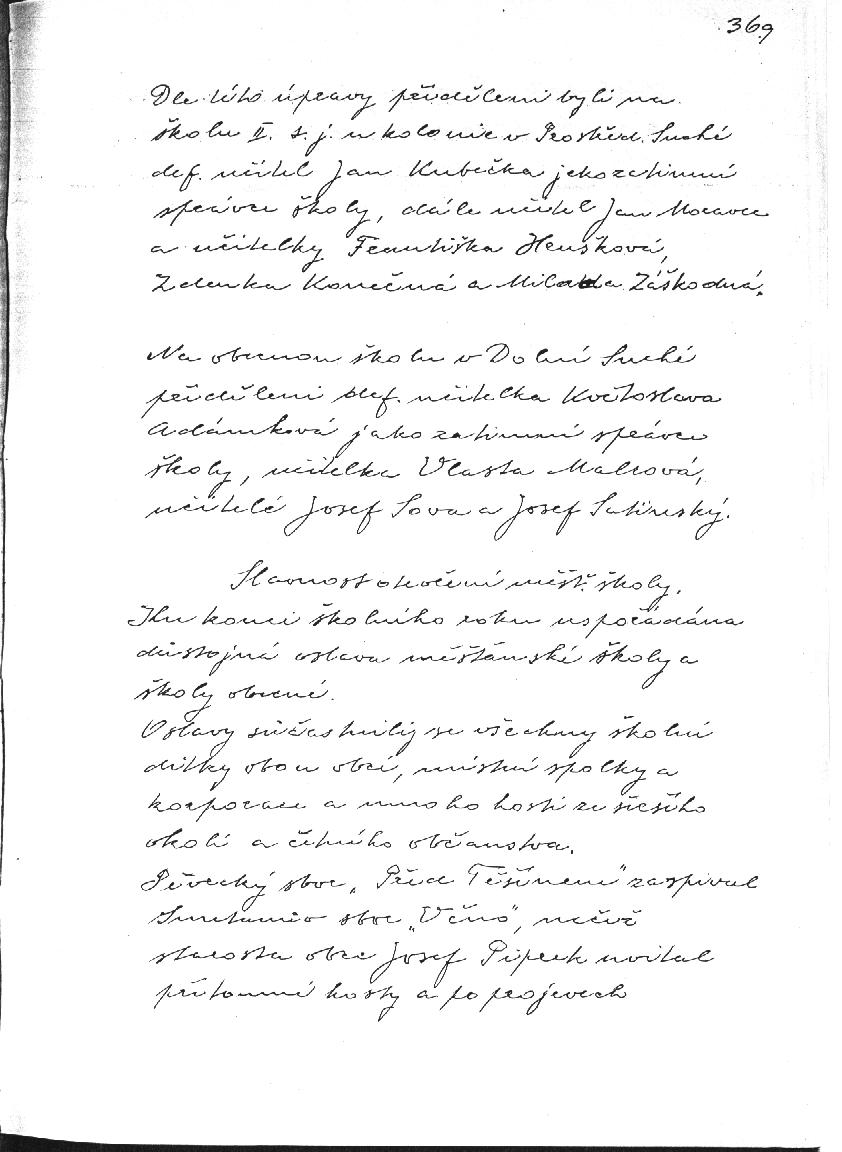 369
Dle této úpravy přiděleni byli na
školu II. s. j. u kolonie v Prostřed. Suché
def. učitel Jan Kubečka jako zatimní
správce školy, dále učitel Jan Moravec
a učitelky Františka Heušková,
Zdenka Konečná a Milada Záškodná.
Na obecnou školu v Dolní Suché
přiděleni def. učitelka Květoslava
Adámková jako zatimní správce
školy, učitelka Vlasta Malrová,
učitelé Josef Sova a Josef Satinský.
Slavnost otevření měšť. školy.
Ku konci školního roku uspořádána
důstojná oslava měšťanské školy a
školy obecné.
Oslavy súčastnily se všechny školní
dítky obou obcí, místní spolky a
korporace a mnoho hostí ze širšího
okolí a četného občanstva.
Pěvecký sbor „Před Těšínem" zazpíval
Smetanův sbor „Věno", načež
starosta obce Josef Piprek uvítal
přítomné hosty a po projevech